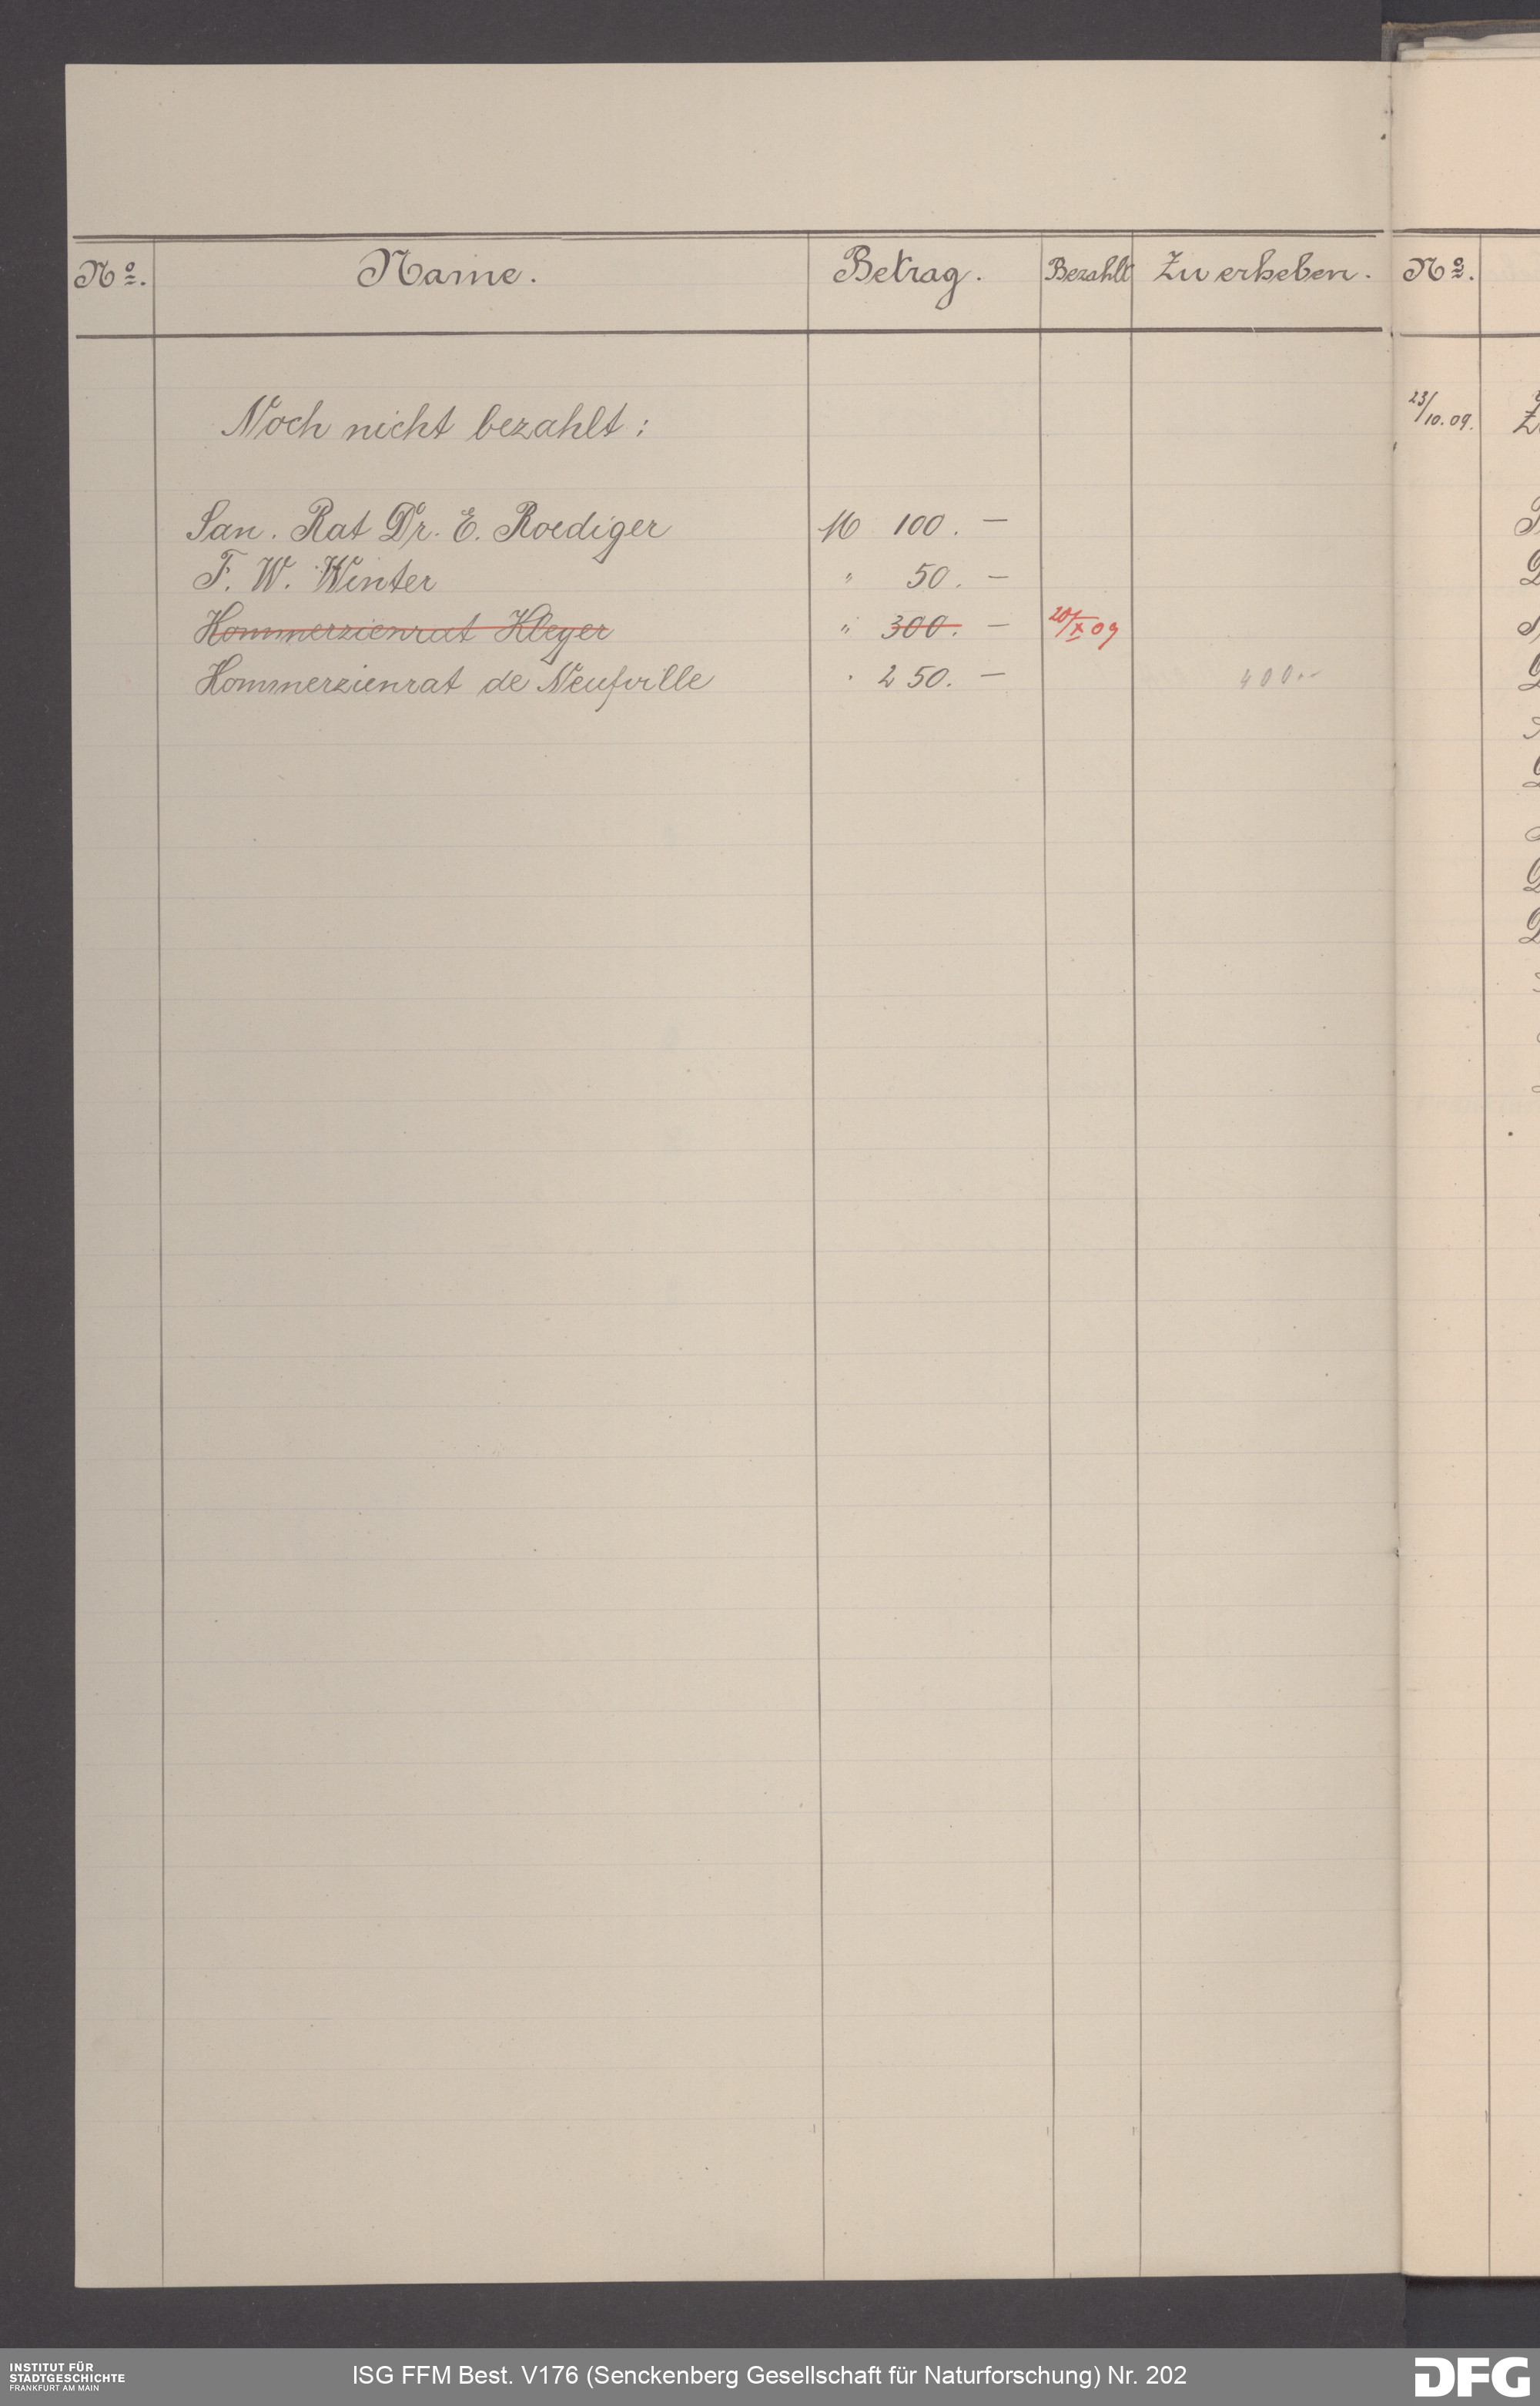 No. Name. Betrag. Bezahlt Zu erheben. No.
Noch nicht bezahlt:
23/10.09.
San. Rat Dr. E. Roediger M 100.—
F. W. Winter " 50.—
Kommerzienrat Kleyer " 300.— 20/X 09
Kommerzienrat de Neufville " 250.— 400.-
INSTITUT FÜR
STADTGESCHICHTE
FRANKFURT AM MAIN
ISG FFM Best. V176 (Senckenberg Gesellschaft für Naturforschung) Nr. 202
DFG